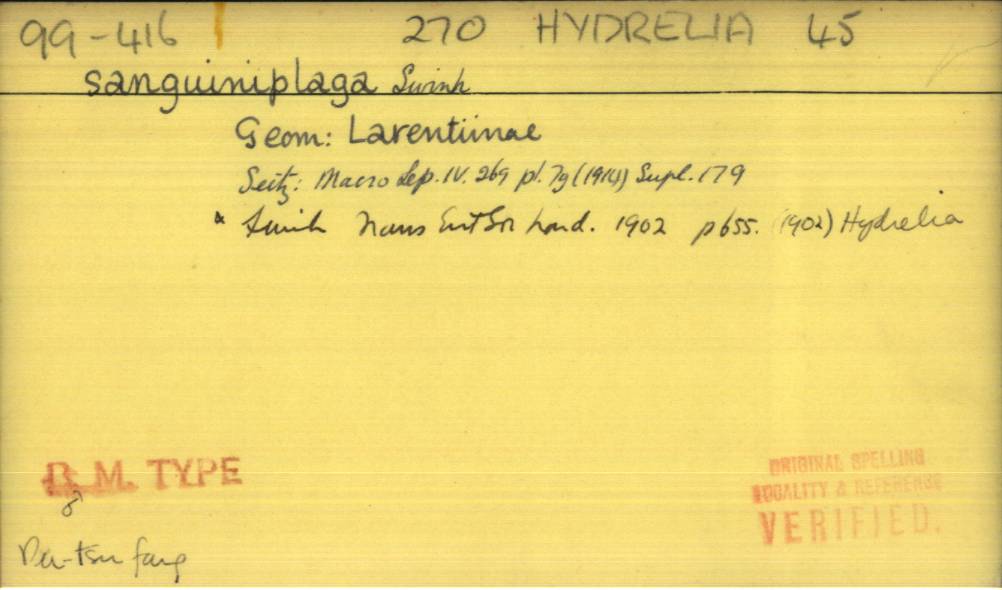 99-416 270 HYDRELIA 45
sanguiniplaga Swinh
Geom: Larentiinae
Seitz: Macro Lep. IV. 269 pl. 7g (1914) Supl. 179
* Swinh Trans Ent Soc Lond. 1902 p655. (1902) Hydrelia
B. M. TYPE
♂
ORIGINAL SPELLING
LOCALITY & REFERENCE
VERIFIED.